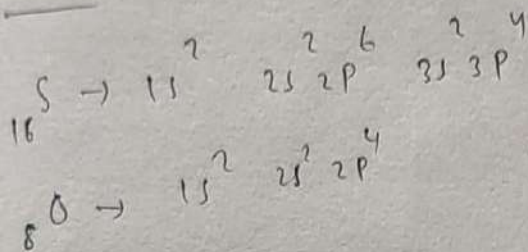 ₁₆S → 1s² 2s² 2p⁶ 3s² 3p⁴
₈O → 1s² 2s² 2p⁴